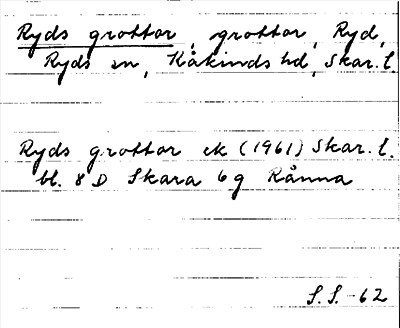 Ryds grottor, grottor, Ryd,
Ryds sn, Kåkinds hd, Skar. l.
Ryds grottor ek (1961) Skar. l.
bl. 8 D Skara 6g Rånna
S.S. -62